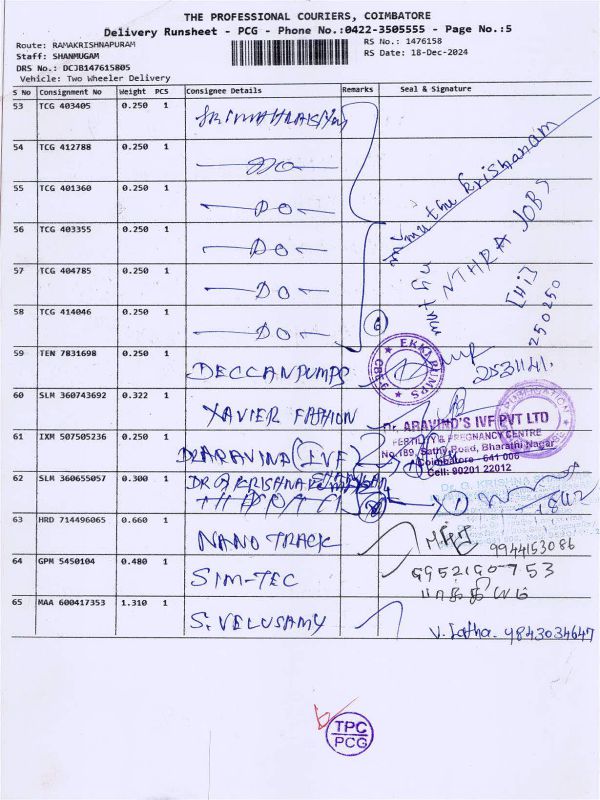 THE PROFESSIONAL COURIERS, COIMBATORE
Delivery Runsheet - PCG - Phone No.:0422-3505555 - Page No.:5
Route: RAMAKRISHNAPURAM
RS No.: 1476158
Staff: SHANMUGAM
RS Date: 18-Dec-2024
DRS No.: DCJB147615805
Vehicle: Two Wheeler Delivery
S No Consignment No Weight PCS Consignee Details Remarks Seal & Signature
53 TCG 403405 0.250 1
54 TCG 412788 0.250 1 DO
55 TCG 401360 0.250 1 DO
56 TCG 403355 0.250 1 DO
57 TCG 404785 0.250 1 DO
58 TCG 414046 0.250 1 DO
muthu krishanam
NTHRA JOBS
[Hi]
250250
6
59 TEN 7831698 0.250 1 DECCANPUMPS
EKKI PUMPS
CBE
2531141.
60 SLM 360743692 0.322 1 XAVIER FASHION
61 IXM 507505236 0.250 1 DR ARAVIND (IVF)
Dr. ARAVIND'S IVF PVT LTD
FERTILITY & PREGNANCY CENTRE
No.189, Sathy Road, Bharathi Nagar
Coimbatore - 641 006
Cell: 90201 22012
62 SLM 360655057 0.300 1 DR G KRISHNA
Dr. G. KRISHNA
63 HRD 714496065 0.660 1 NANO TRACK
9944153086
64 GPM 5450104 0.480 1 SIM-TEC
9952190753
65 MAA 600417353 1.310 1 S. VELUSAMY
V. Latha. 9843034647
TPC
PCG